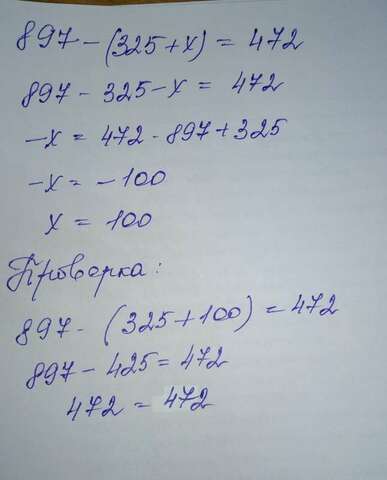 897 - (325+x) = 472
897 - 325 - x = 472
-x = 472 - 897 + 325
-x = -100
x = 100
Проверка:
897 - (325+100) = 472
897 - 425 = 472
472 = 472